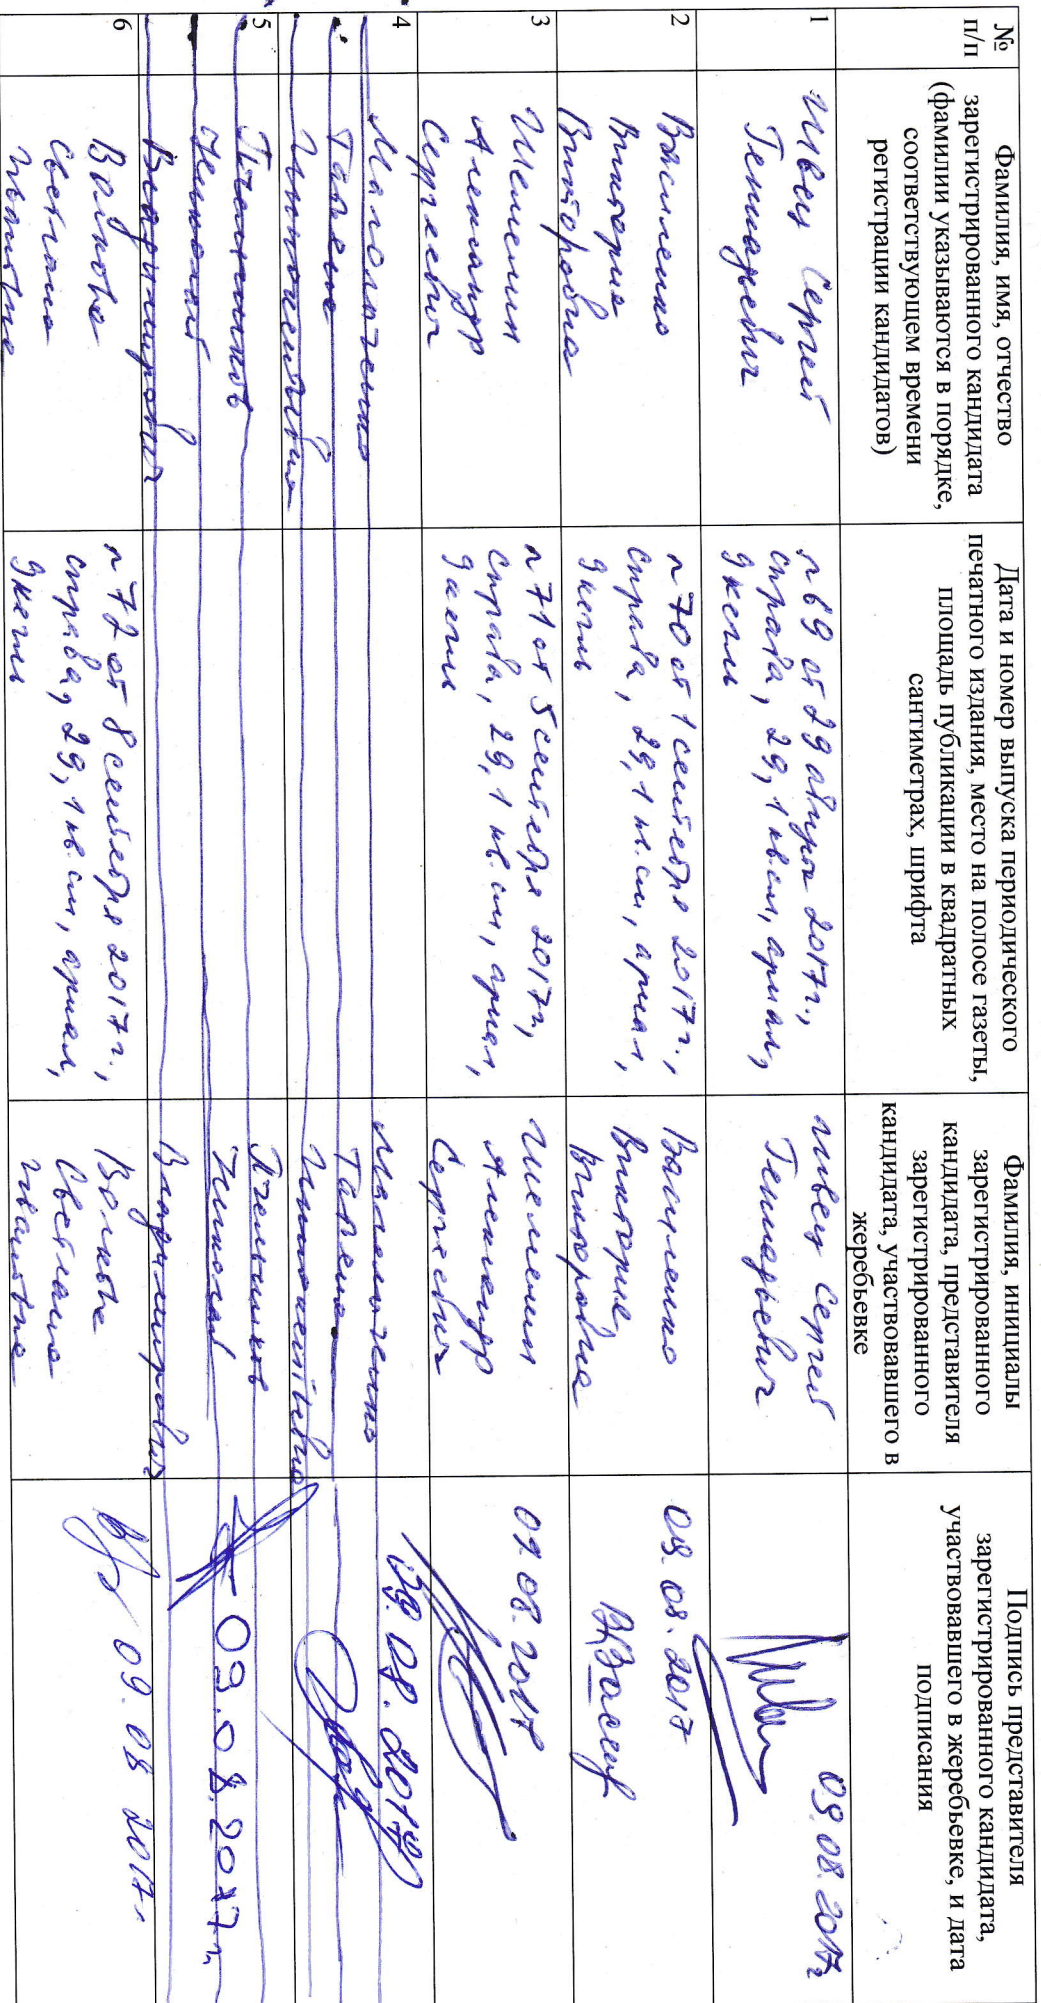 №
п/п
Фамилия, имя, отчество
зарегистрированного кандидата
(фамилии указываются в порядке,
соответствующем времени
регистрации кандидатов)
Дата и номер выпуска периодического
печатного издания, место на полосе газеты,
площадь публикации в квадратных
сантиметрах, шрифта
Фамилия, инициалы
зарегистрированного
кандидата, представителя
зарегистрированного
кандидата, участвовавшего в
жеребьевке
Подпись представителя
зарегистрированного кандидата,
участвовавшего в жеребьевке, и дата
подписания
1
Швец Сергей
Геннадьевич
№69 от 29 августа 2017г.,
справа, 29,1 кв.см, ариал,
9 кегль
Швец Сергей
Геннадьевич
09.08.2017г
2
Василенко
Виктория
Викторовна
№70 от 1 сентября 2017г.,
справа, 29,1 кв.см, ариал,
9 кегль
Василенко
Виктория
Викторовна
09.08.2017
3
Шемелин
Александр
Сергеевич
№71 от 5 сентября 2017г,
справа, 29,1 кв.см, ариал,
9 кегль
Шемелин
Александр
Сергеевич
09.08.2017
4
Татьяна
Иннокентьевна
Татьяна
Иннокентьевна
09.08.2017
5
Пчельников
Николай
Владимирович
Николай
Владимирович
09.08.2017г,
6
Волкова
Светлана
Ивановна
№72 от 8 сентября 2017г.,
справа, 29,1 кв.см, ариал,
9 кегль
Волкова
Светлана
Ивановна
09.08 2017г.